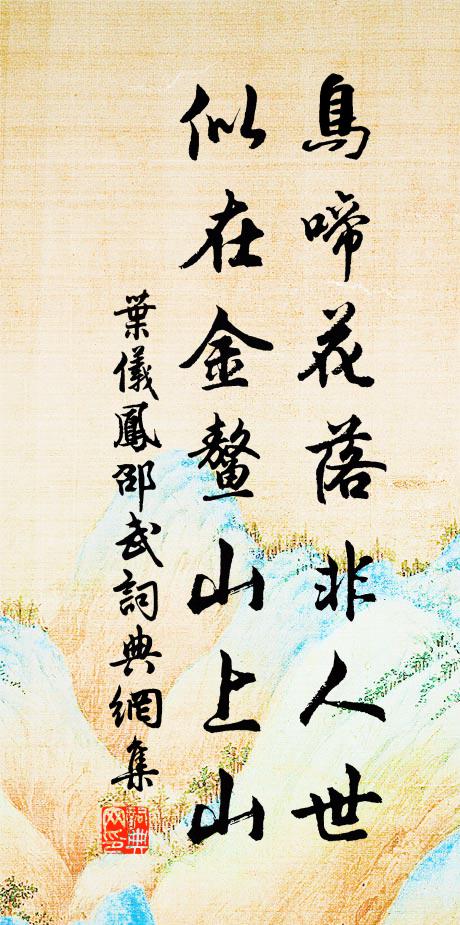 鳥啼花落非人世
似在金鳌山上山
葉儀鳳邵武詞典網集
詞典
网印